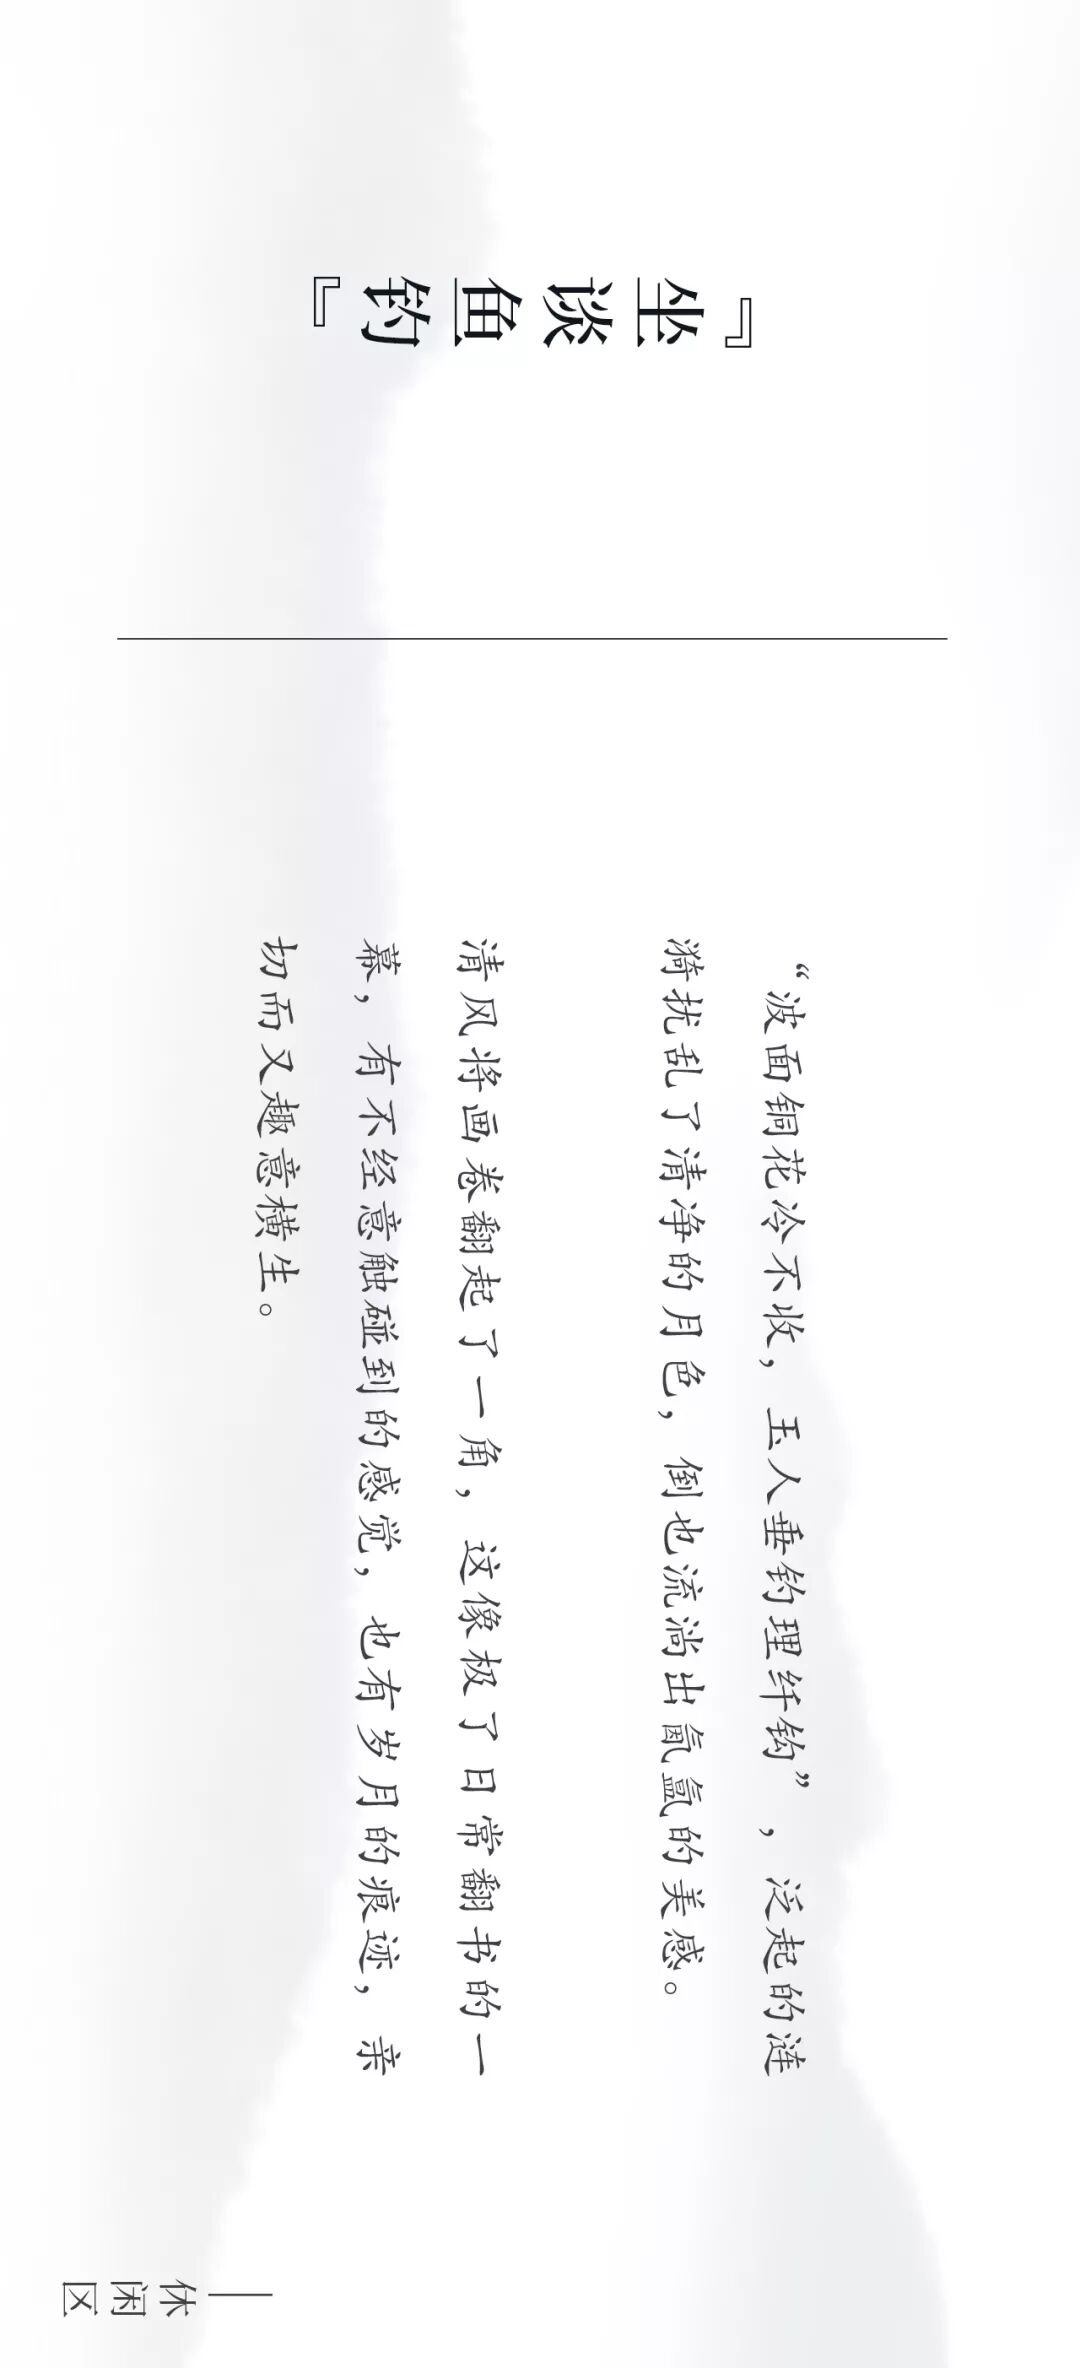 『坐谈鱼钓』
“波面铜花冷不收，玉人垂钓理纤钩”，泛起的涟
漪扰乱了清净的月色，倒也流淌出氤氲的美感。
清风将画卷翻起了一角，这像极了日常翻书的一
幕，有不经意触碰到的感觉，也有岁月的痕迹，亲
切而又趣意横生。
——休闲区